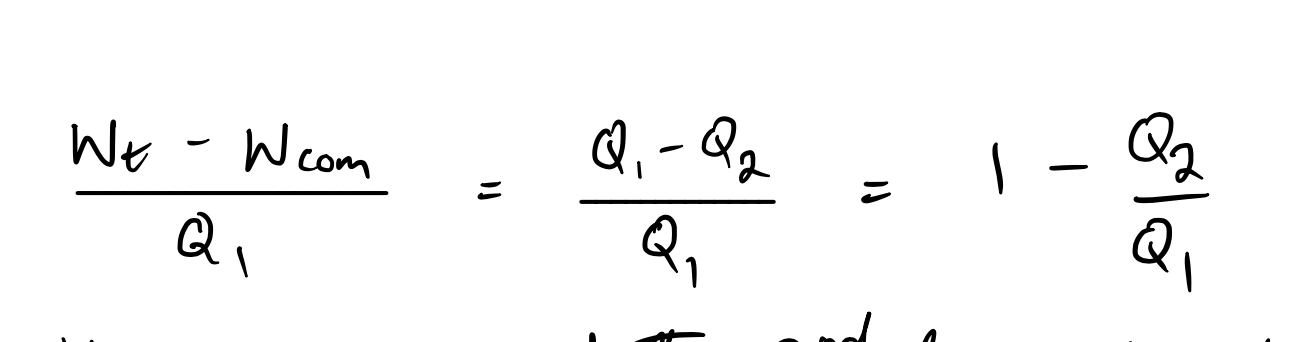 (Wt - Wcom) / Q1 = (Q1 - Q2) / Q1 = 1 - Q2 / Q1